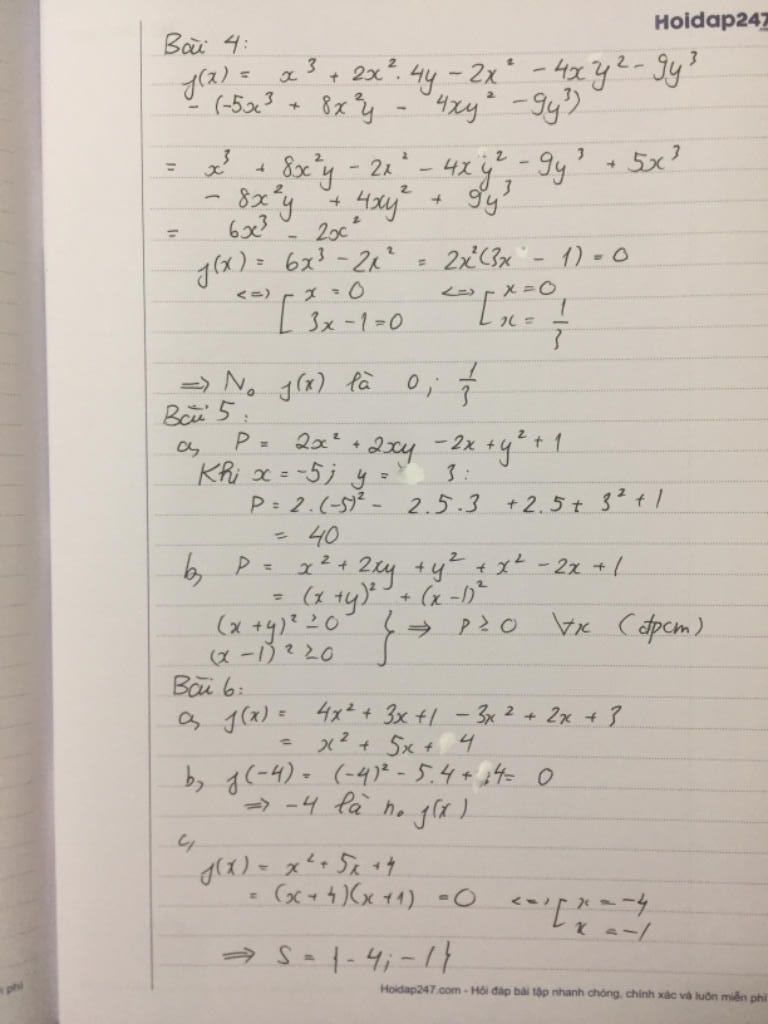 Hoidap247
Bài 4:
g(x) = x³ + 2x².4y - 2x² - 4xy² - 9y³
- (-5x³ + 8x²y - 4xy² - 9y³)
= x³ + 8x²y - 2x² - 4xy² - 9y³ + 5x³
- 8x²y + 4xy² + 9y³
= 6x³ - 2x²
g(x) = 6x³ - 2x² = 2x²(3x - 1) = 0
<=> [ x = 0 <=> [ x = 0
3x - 1 = 0 x = 1/3
=> No g(x) là 0; 1/3
Bài 5:
a, P = 2x² + 2xy - 2x + y² + 1
Khi x = -5; y = 3:
P = 2.(-5)² - 2.5.3 + 2.5 + 3² + 1
= 40
b, P = x² + 2xy + y² + x² - 2x + 1
= (x+y)² + (x-1)²
(x+y)² ≥ 0 } => P ≥ 0 ∀x (đpcm)
(x-1)² ≥ 0
Bài 6:
a, g(x) = 4x² + 3x + 1 - 3x² + 2x + 3
= x² + 5x + 4
b, g(-4) = (-4)² - 5.4 + 4 = 0
=> -4 là no g(x)
c,
g(x) = x² + 5x + 4
= (x+4)(x+1) = 0 <=> [ x = -4
x = -1
=> S = {-4; -1}
phí
Hoidap247.com - Hỏi đáp bài tập nhanh chóng, chính xác và luôn miễn phí